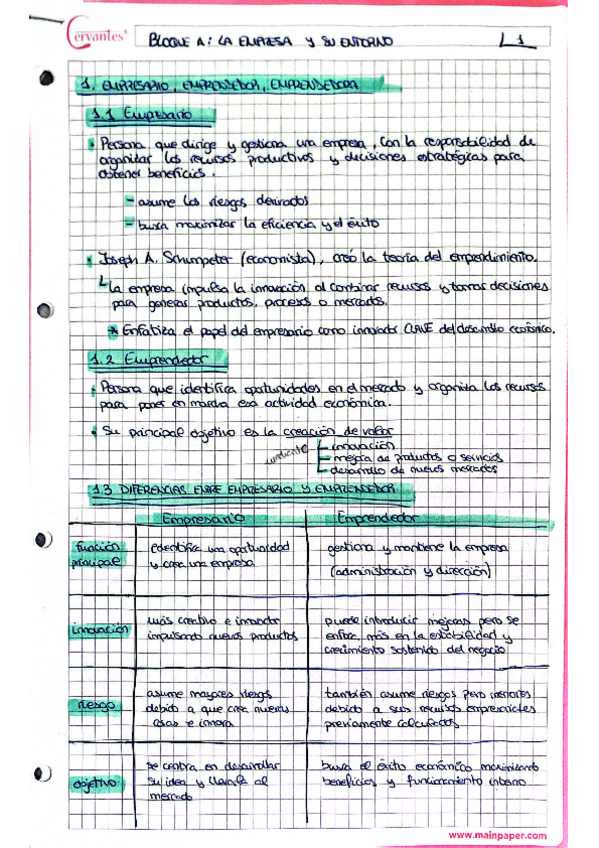 Cervantes
BLOQUE A: LA EMPRESA Y SU ENTORNO
L1
1. EMPRESARIO, EMPRENDEDOR, EMPRENDEDORA
1.1 Empresario
• Persona que dirige y gestiona una empresa, con la responsabilidad de
organizar los recursos productivos y decisiones estratégicas para
obtener beneficios.
- asume los riesgos derivados
- busca maximizar la eficiencia y el éxito
• Joseph A. Schumpeter (economista), creó la teoría del emprendimiento.
La empresa impulsa la innovación al combinar recursos y tomar decisiones
para generar productos, procesos o mercados.
* Enfatiza el papel del empresario como innovador CLAVE del desarrollo económico.
1.2 Emprendedor
• Persona que identifica oportunidades en el mercado y organiza los recursos
para poner en marcha esa actividad económica.
• Su principal objetivo es la creación de valor
mediante
- innovación
- mejora de productos o servicios
- desarrollo de nuevos mercados
1.3 DIFERENCIAS ENTRE EMPRESARIO Y EMPRENDEDOR
Empresario
Emprendedor
función
principal
identifica una oportunidad
y crea una empresa
gestiona y mantiene la empresa
(administración y dirección)
innovación
más creativo e innovador
impulsando nuevos productos
puede introducir mejoras pero se
enfoca más en la estabilidad y
crecimiento sostenido del negocio
riesgo
asume mayores riesgos
debido a que crea nuevas
cosas e innova
también asume riesgos pero menores
debido a sus recursos empresariales
previamente calculados
objetivo
se centra en desarrollar
su idea y llevarla al
mercado
busca el éxito económico maximizando
beneficios y funcionamiento interno
www.mainpaper.com